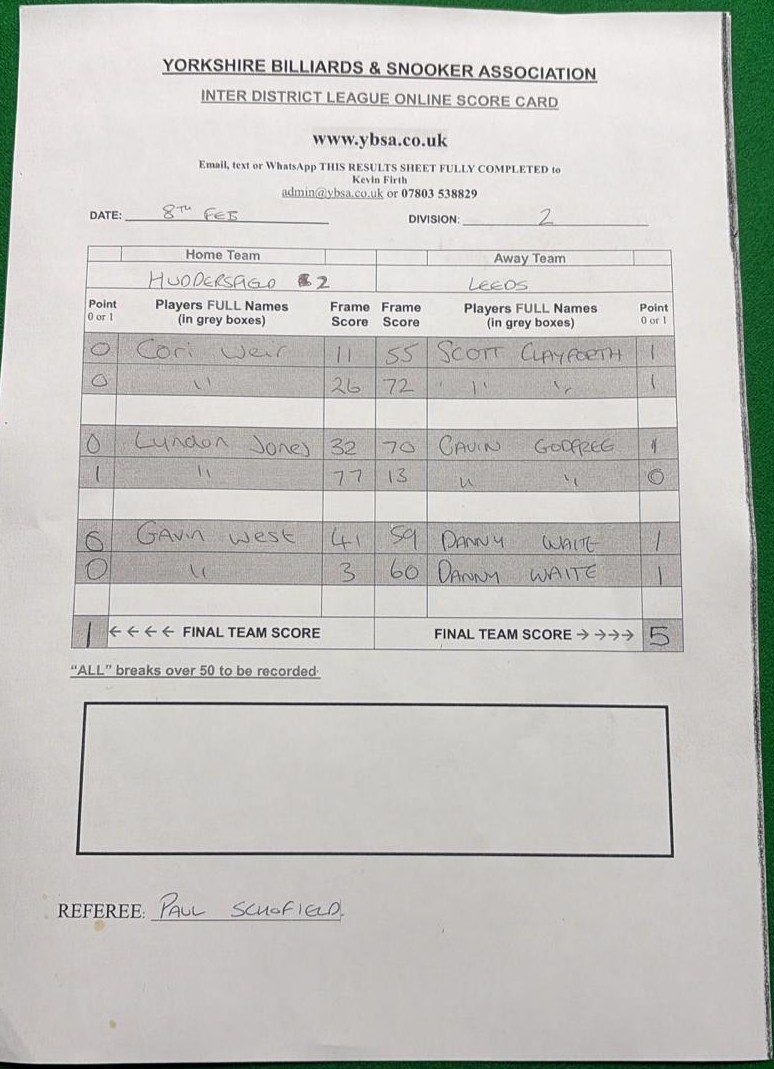 YORKSHIRE BILLIARDS & SNOOKER ASSOCIATION
INTER DISTRICT LEAGUE ONLINE SCORE CARD
www.ybsa.co.uk
Email, text or WhatsApp THIS RESULTS SHEET FULLY COMPLETED to
Kevin Firth
admin@ybsa.co.uk or 07803 538829
DATE: 8TH FEB DIVISION: 2
Home Team Away Team
HUDDERSFIELD 2 LEEDS
Point 0 or 1 Players FULL Names (in grey boxes) Frame Score Frame Score Players FULL Names (in grey boxes) Point 0 or 1
0 Cori Weir 11 55 SCOTT CLAYFORTH 1
0 " 26 72 " " 1
0 Lyndon Jones 32 70 GAVIN GODFREE 1
1 " 77 13 " " 0
0 Gavin West 41 59 DANNY WAITE 1
0 " 3 60 DANNY WAITE 1
1 ←←←← FINAL TEAM SCORE FINAL TEAM SCORE →→→→ 5
"ALL" breaks over 50 to be recorded.
REFEREE: PAUL SCHOFIELD.